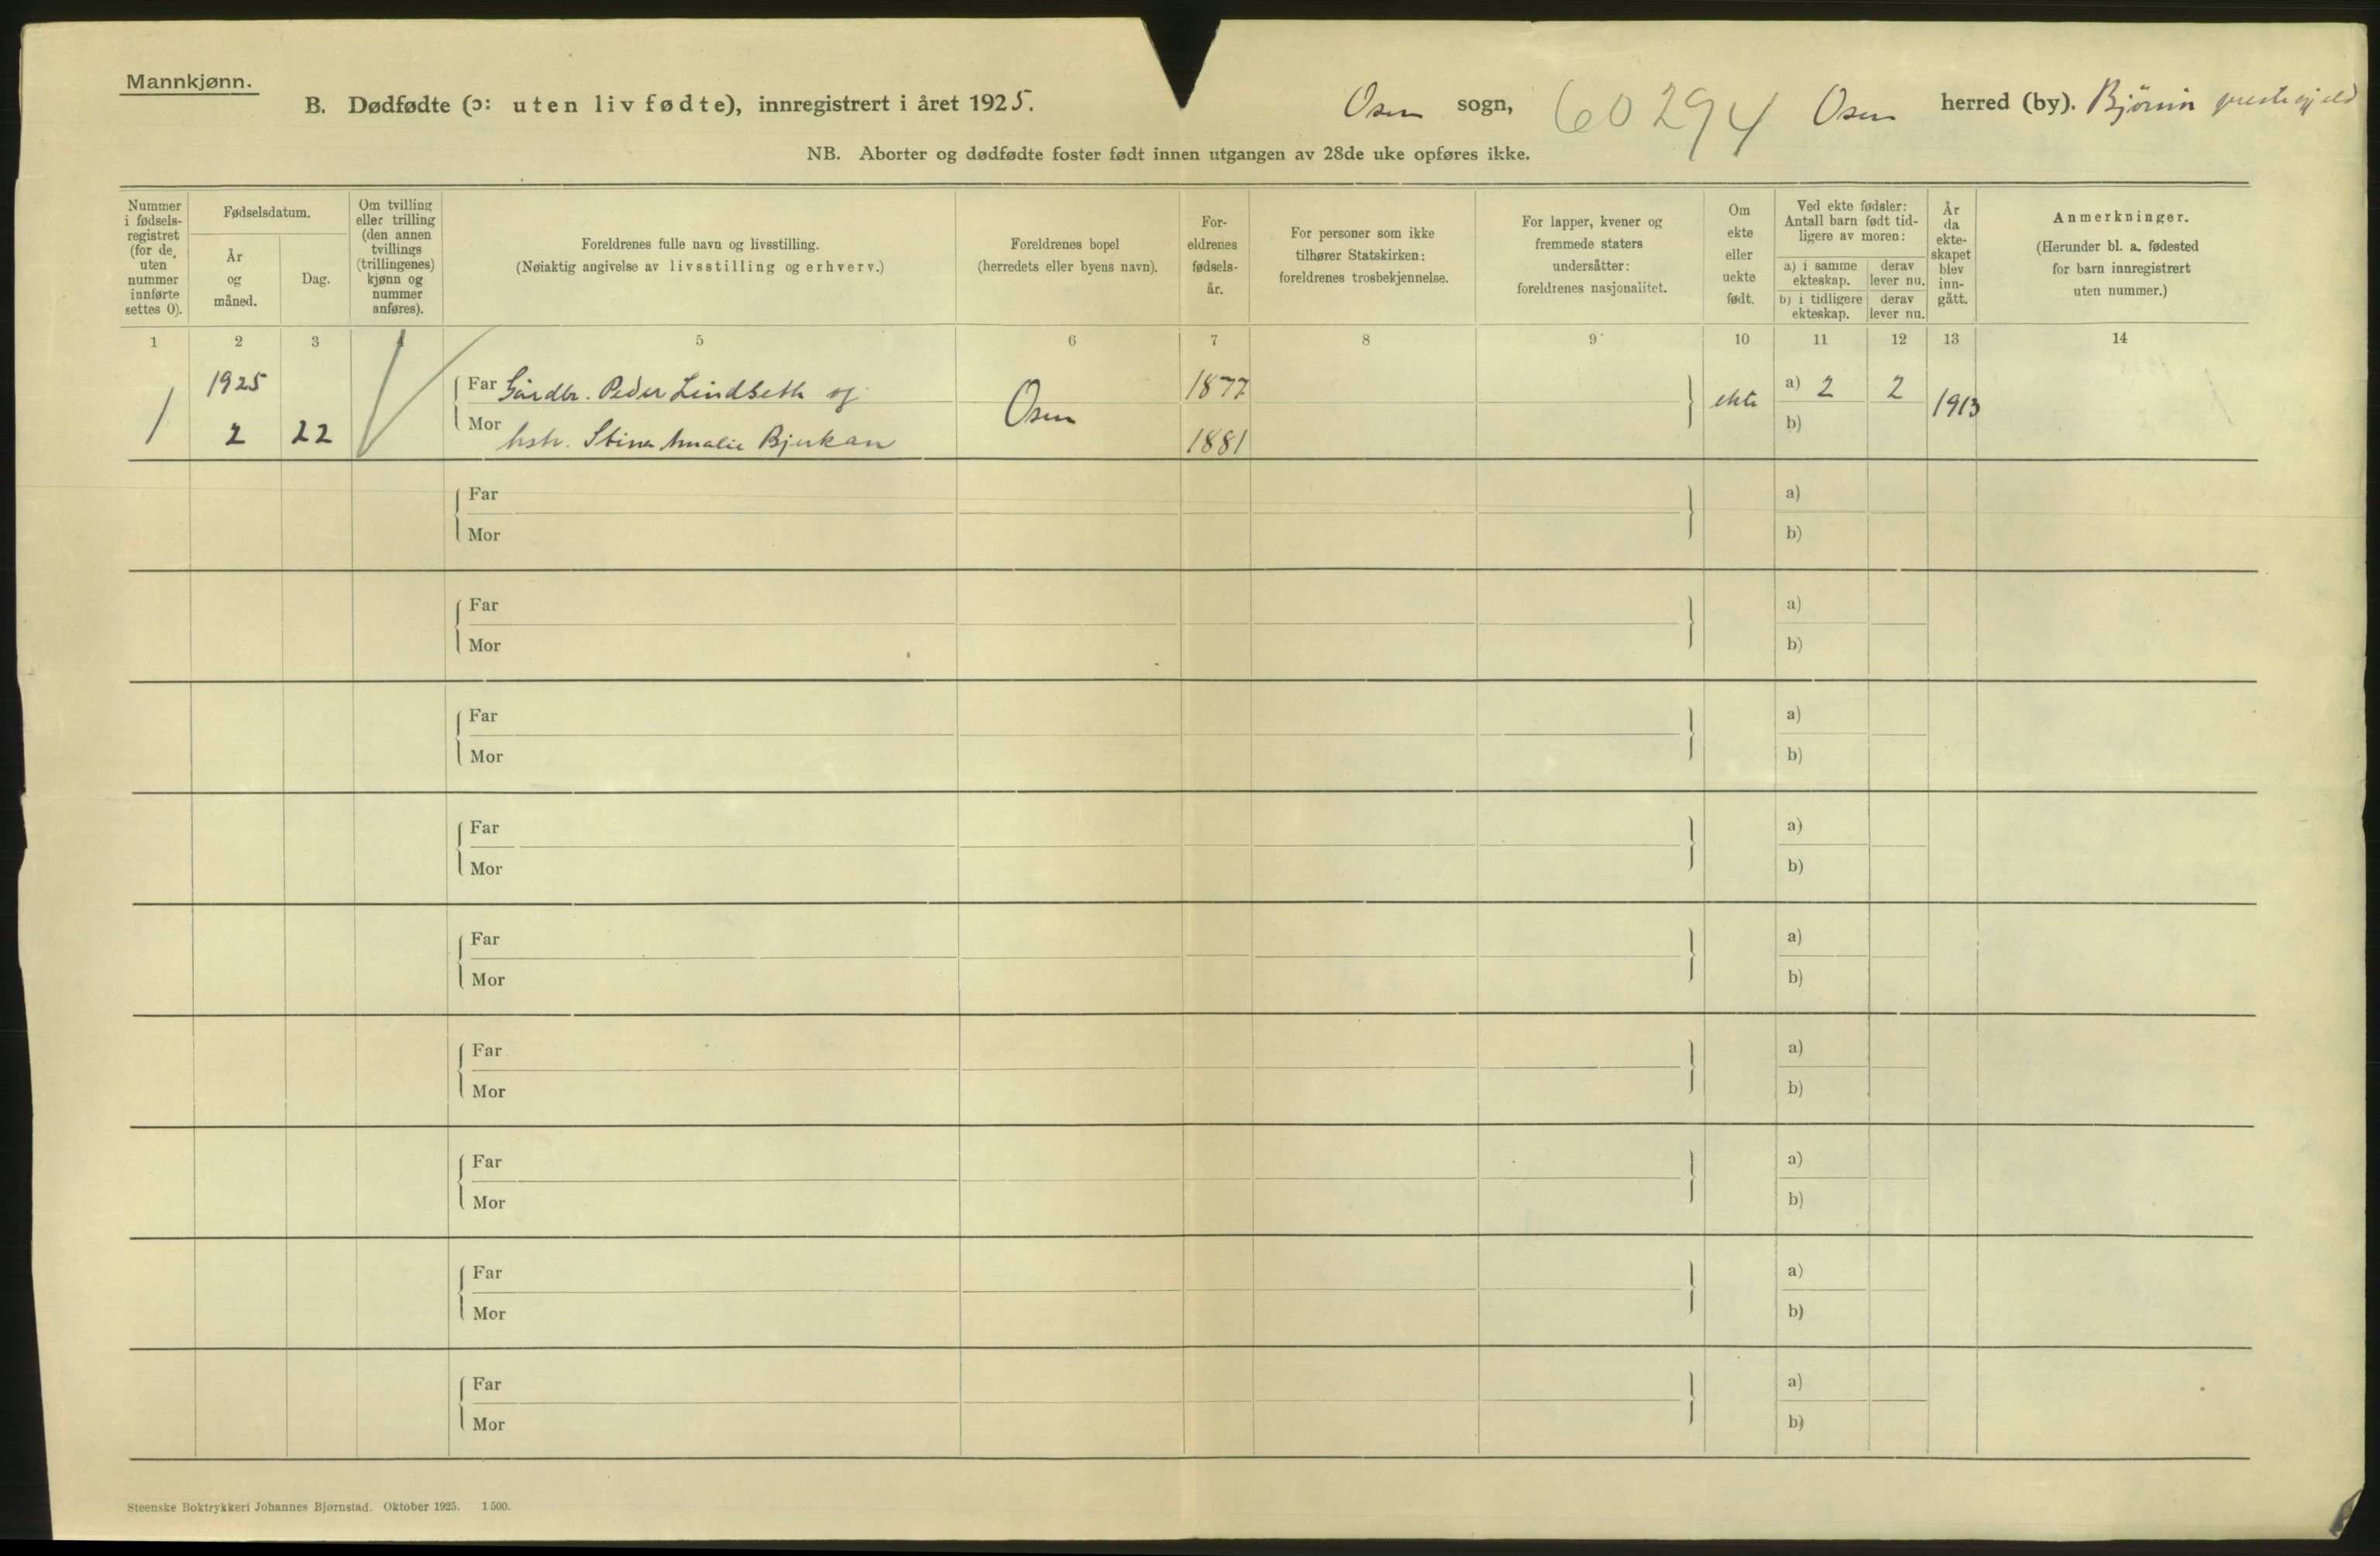 Mannkjønn.
B. Dødfødte (ɔ: uten liv fødte), innregistrert i året 1925. Osen sogn, 60294 Osen herred (by). Bjørnør prestegjeld
NB. Aborter og dødfødte foster født innen utgangen av 28de uke opføres ikke.
Nummer
i fødsels-
registret
(for de
uten
nummer
innførte
settes 0).
Fødselsdatum.
År
og
måned.
Dag.
Om tvilling
eller trilling
(den annen
tvillings
(trillingenes)
kjønn og
nummer
anføres).
Foreldrenes fulle navn og livsstilling.
(Nøiaktig angivelse av livsstilling og erhverv.)
Foreldrenes bopel
(herredets eller byens navn).
For-
eldrenes
fødsels-
år.
For personer som ikke
tilhører Statskirken:
foreldrenes trosbekjennelse.
For lapper, kvener og
fremmede staters
undersåtter:
foreldrenes nasjonalitet.
Om
ekte
eller
uekte
født.
Ved ekte fødsler:
Antall barn født tid-
ligere av moren:
a) i samme
ekteskap.
derav
lever nu.
b) i tidligere
ekteskap.
derav
lever nu.
År
da
ekte-
skapet
blev
inn-
gått.
Anmerkninger.
(Herunder bl. a. fødested
for barn innregistrert
uten nummer.)
1 2 3 4 5 6 7 8 9 10 11 12 13 14
1925
Far Gårdbr. Peder Lindseth og 1877 a) 2 2
1 Osen ekte 1913
2 22 Mor hstr. Stina Amalie Bjerkan 1881 b)
Far a)
Mor b)
Far a)
Mor b)
Far a)
Mor b)
Far a)
Mor b)
Far a)
Mor b)
Far a)
Mor b)
Far a)
Mor b)
Far a)
Mor b)
Far a)
Mor b)
Steenske Boktrykkeri Johannes Bjørnstad. Oktober 1925. 1500.